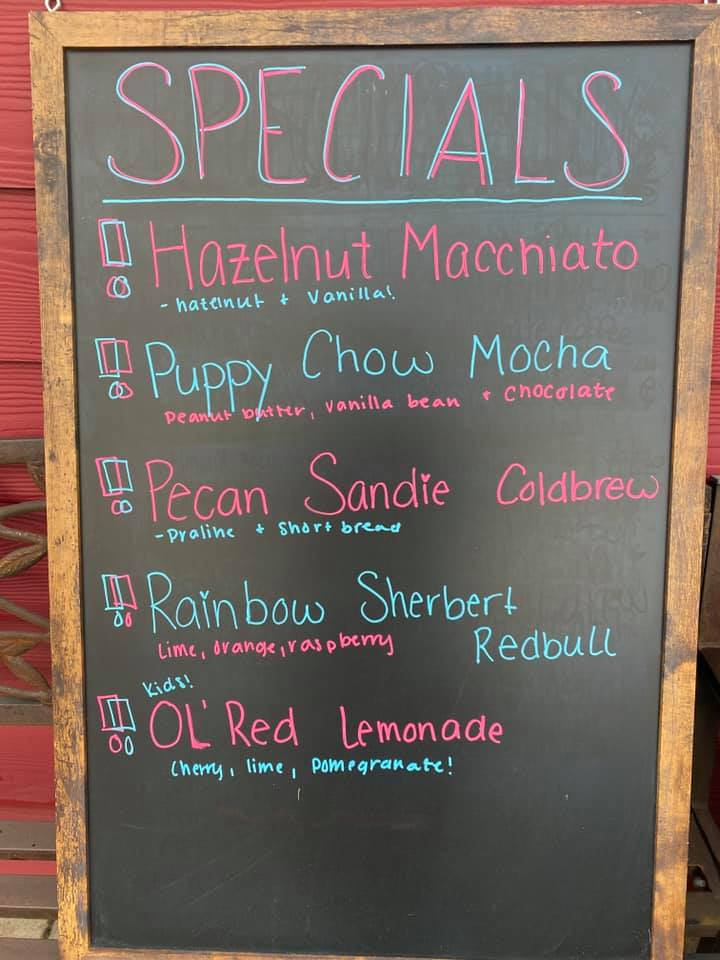 SPECIALS
Hazelnut Macchiato
- hazelnut + Vanilla!
Puppy Chow Mocha
Peanut butter, vanilla bean + chocolate
Pecan Sandie Coldbrew
- Praline + Short bread
Rainbow Sherbert
Redbull
Lime, orange, raspberry
Kids!
OL' Red Lemonade
Cherry, lime, pomegranate!